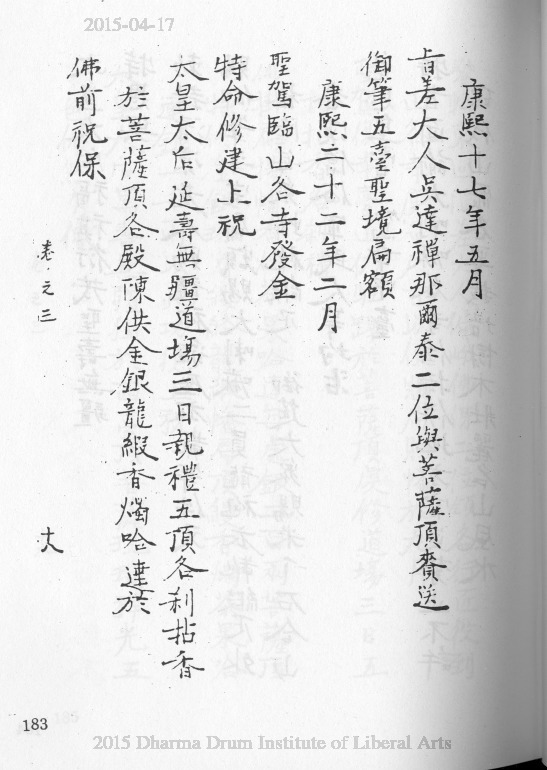 2015-04-17
康熙十七年五月
旨差大人吳達禪那爾泰二位與菩薩頂賫送
御筆五臺聖境扁額
康熙二十二年二月
聖駕臨山各寺發金
特命修建上祝
太皇太后延壽無疆道場三日親禮五頂各刹拈香
於菩薩頂各殿陳供金銀龍緞香燭哈達於
佛前祝保
卷之三
十八
183
2015 Dharma Drum Institute of Liberal Arts